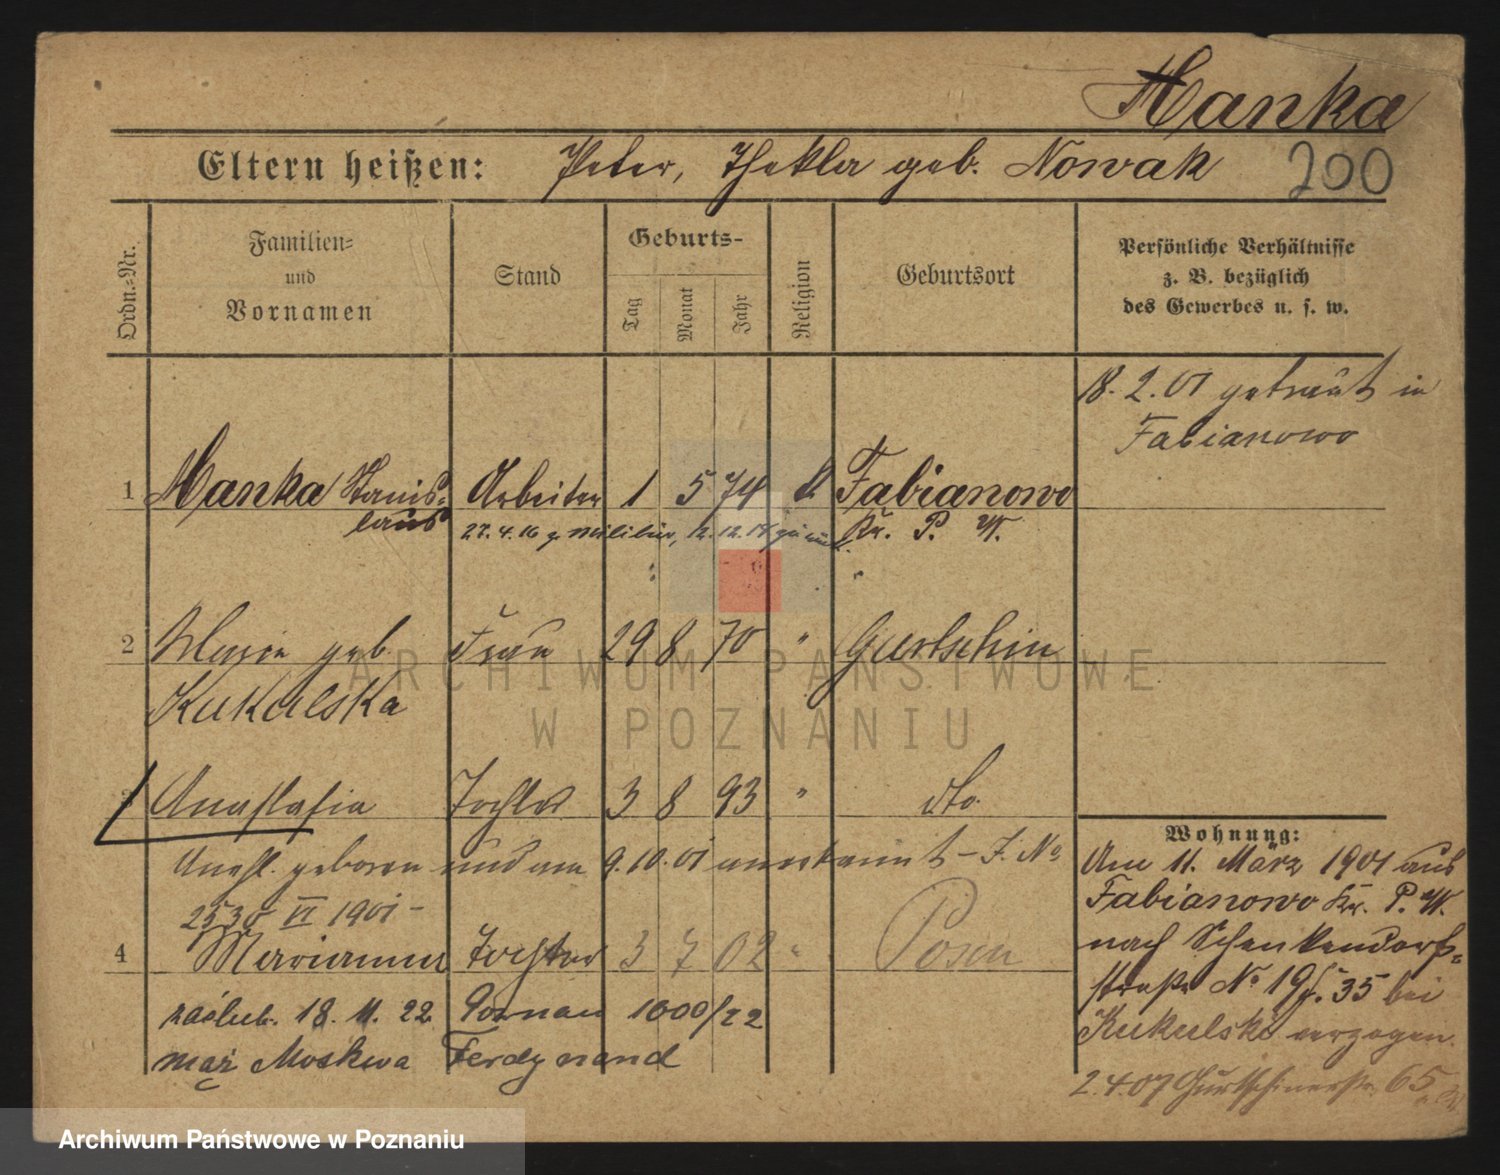 Hanka
Eltern heißen: Peter, Thekla geb. Nowak 200
Ordn.-Nr.
Familien-
und
Vornamen
Stand
Geburts-
Tag
Monat
Jahr
Religion
Geburtsort
Persönliche Verhältnisse
z. B. bezüglich
des Gewerbes u. s. w.
18. 2. 01 getraut in
Fabianowo
1 Hanka Stanis-
laus
Arbeiter 1 5 74 k Fabianowo
27. 4. 16 z. Militär, 12. 12. 18 zurück. Kr. P. W.
2 Marie geb. Frau 29 8 70 " Gurtschin
Kukulska
3 Anastasia Tochter 3 8 93 " dto.
geboren und am 9. 10. 01 anerkannt - J. No
2530 VI 1901 -
4 Marianna Tochter 3 7 02 " Posen
zaślub. 18. 11. 22. Poznań 1000/22
mąż Moskwa Ferdynand
Wohnung:
Am 11. März 1901 aus
Fabianowo Kr. P. W.
nach Schenkendorf-
straße No 19 35 bei
Kukulski verzogen.
2. 4. 07 Gurtschinerstr. 65
ARCHIWUM PAŃSTWOWE
W POZNANIU
Archiwum Państwowe w Poznaniu